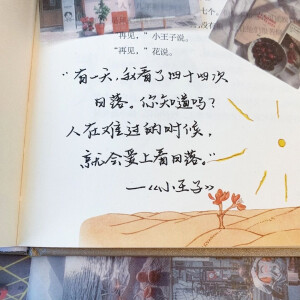 七个,
没有
“再见,”小王子说。
“再见,”花说。
“有一天,我看了四十四次
日落。你知道吗?
人在难过的时候,
就会爱上看日落。”
—《小王子》